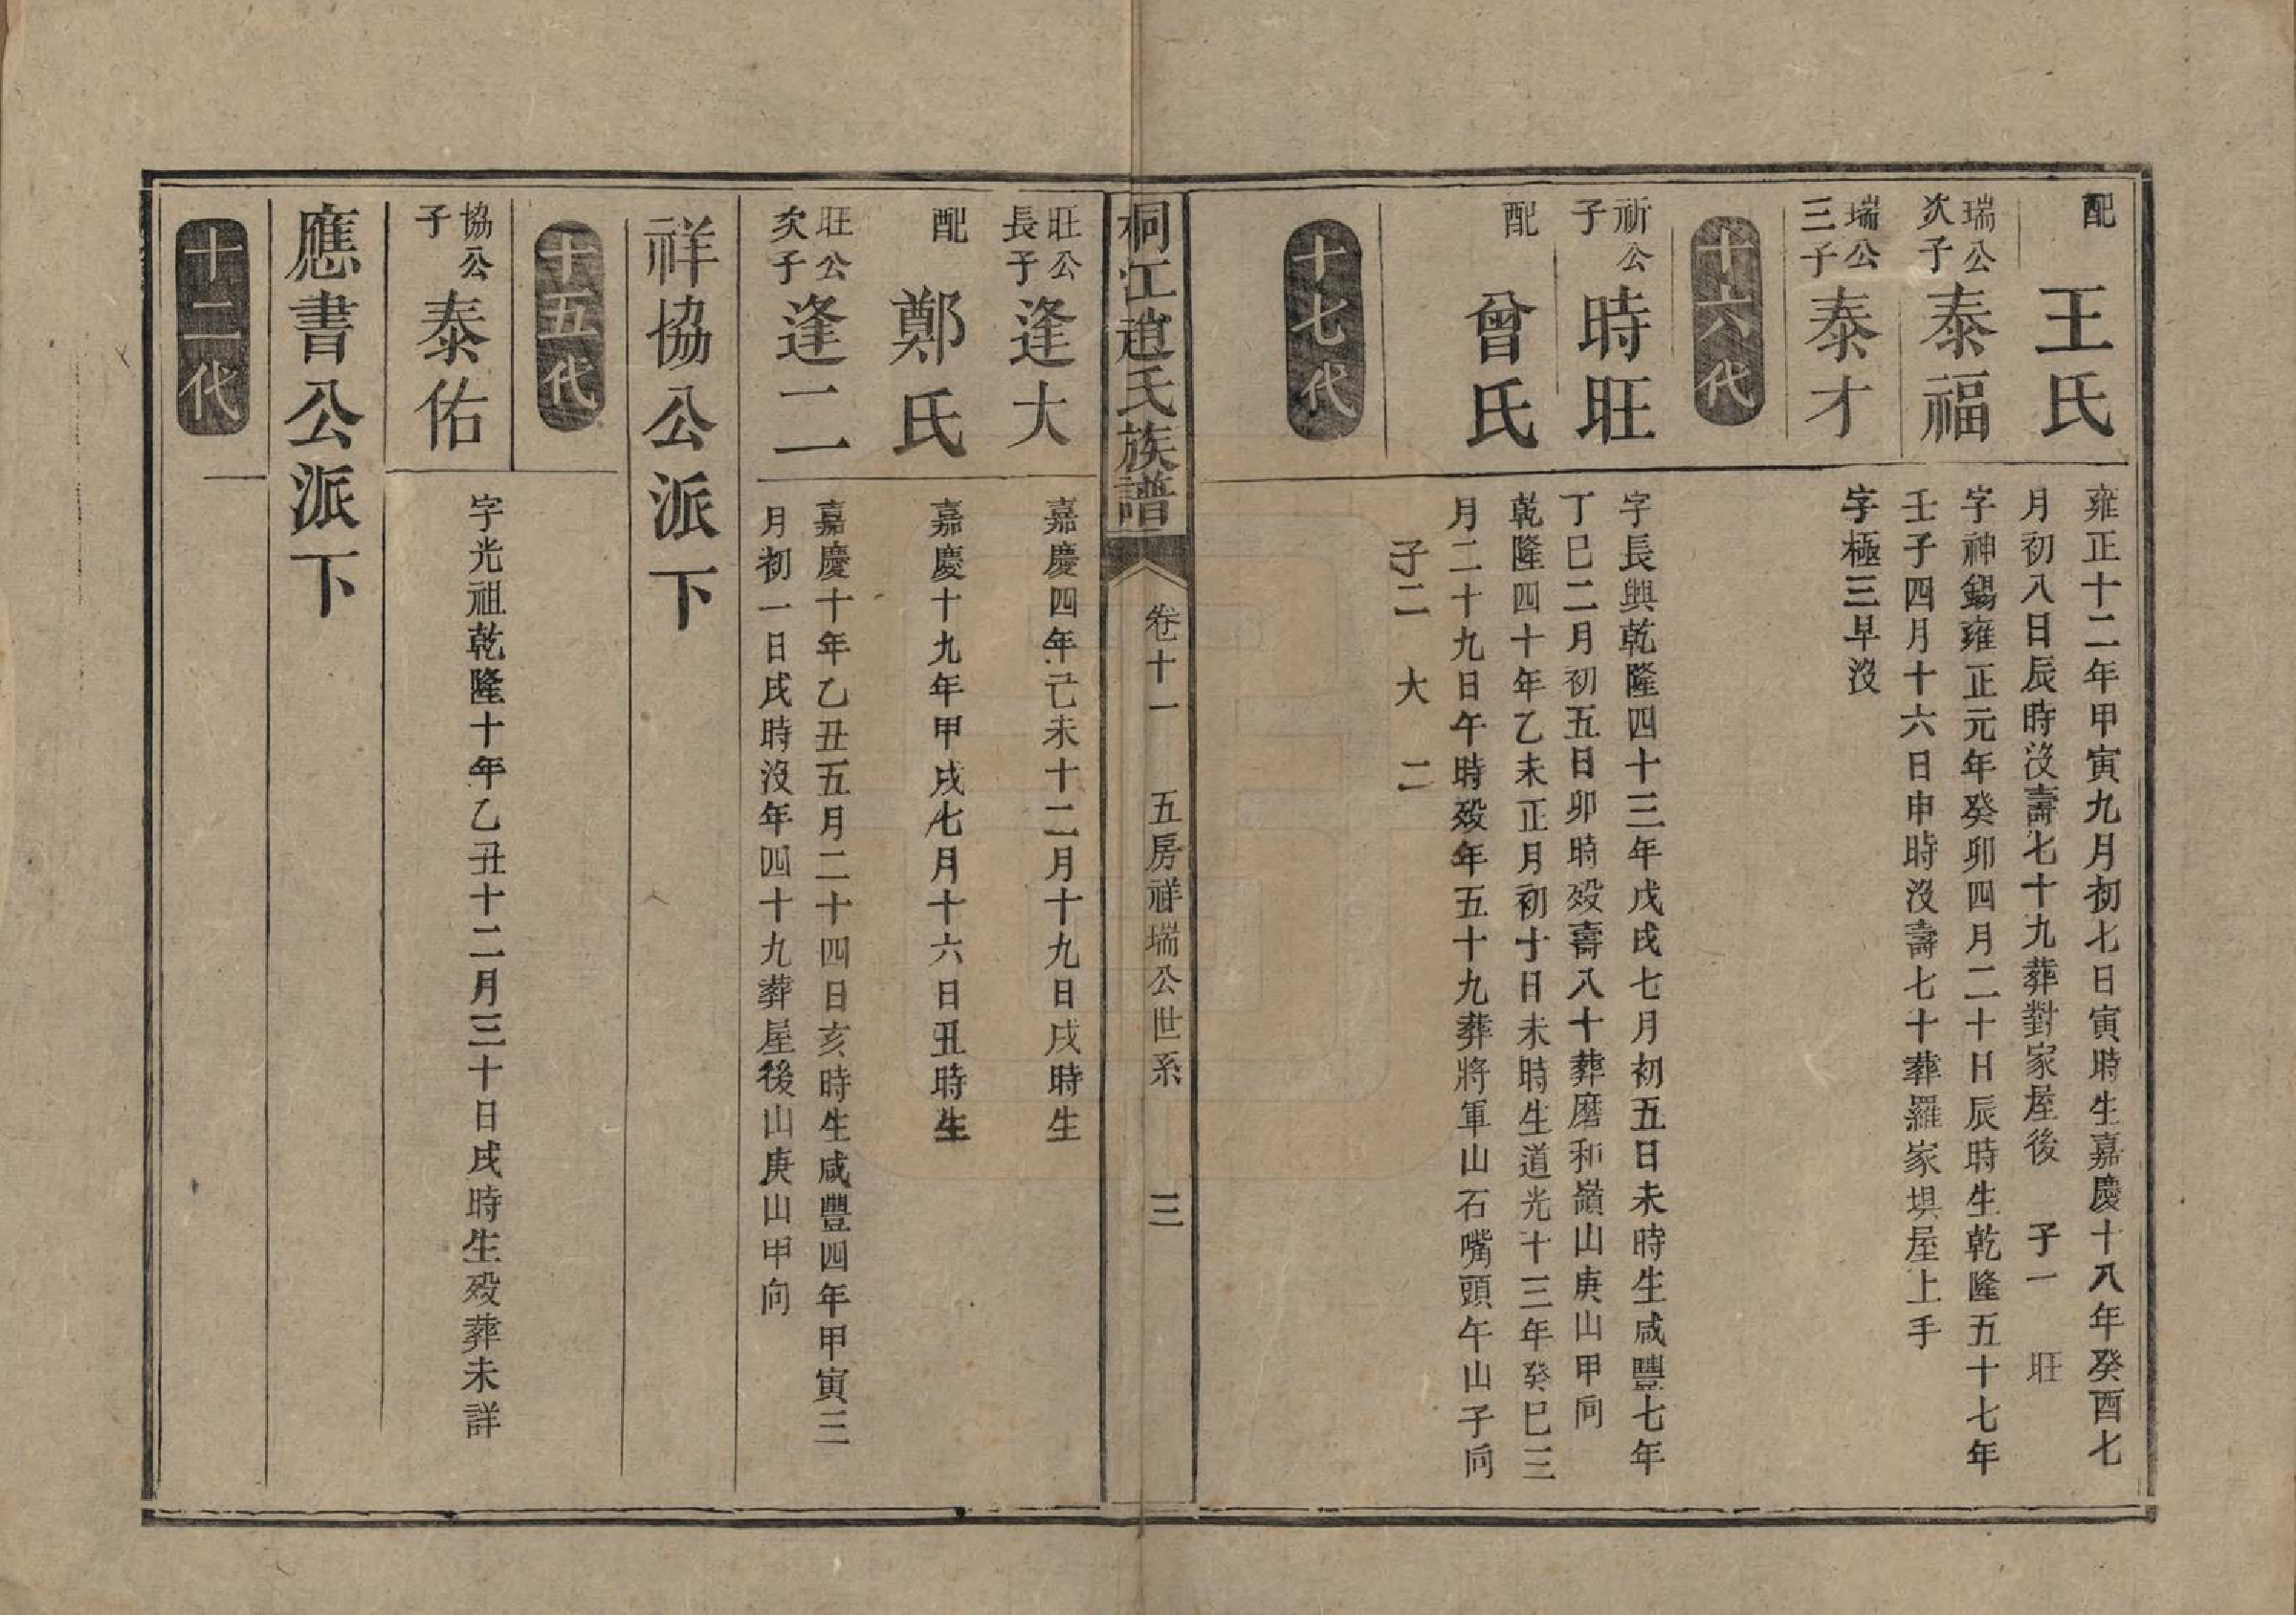 配
王氏
雍正十二年甲寅九月初七日寅時生嘉慶十八年癸酉七
月初八日辰時沒壽七十九葬對家屋後 子一 旺
瑞公
次子
泰福
字神錫雍正元年癸卯四月二十日辰時生乾隆五十七年
壬子四月十六日申時沒壽七十葬羅家垻屋上手
瑞公
三子
泰才
字極三早沒
十六代
祈公
子
時旺
字長興乾隆四十三年戊戌七月初五日未時生咸豐七年
丁巳二月初五日卯時歿壽八十葬磨和嶺山庚山甲向
配
曾氏
乾隆四十年乙未正月初十日未時生道光十三年癸巳三
月二十九日午時歿年五十九葬將軍山石嘴頭午山子向
子二 大 二
十七代
桐江趙氏族譜
卷十一 五房祥瑞公世系 三
旺公
長子
逢大
嘉慶四年己未十二月十九日戌時生
配
鄭氏
嘉慶十九年甲戌七月十六日丑時生
旺公
次子
逢二
嘉慶十年乙丑五月二十四日亥時生咸豐四年甲寅三
月初一日戌時沒年四十九葬屋後山庚山甲向
祥協公派下
十五代
協公
子
泰佑
字光祖乾隆十年乙丑十二月三十日戌時生歿葬未詳
應書公派下
十二代